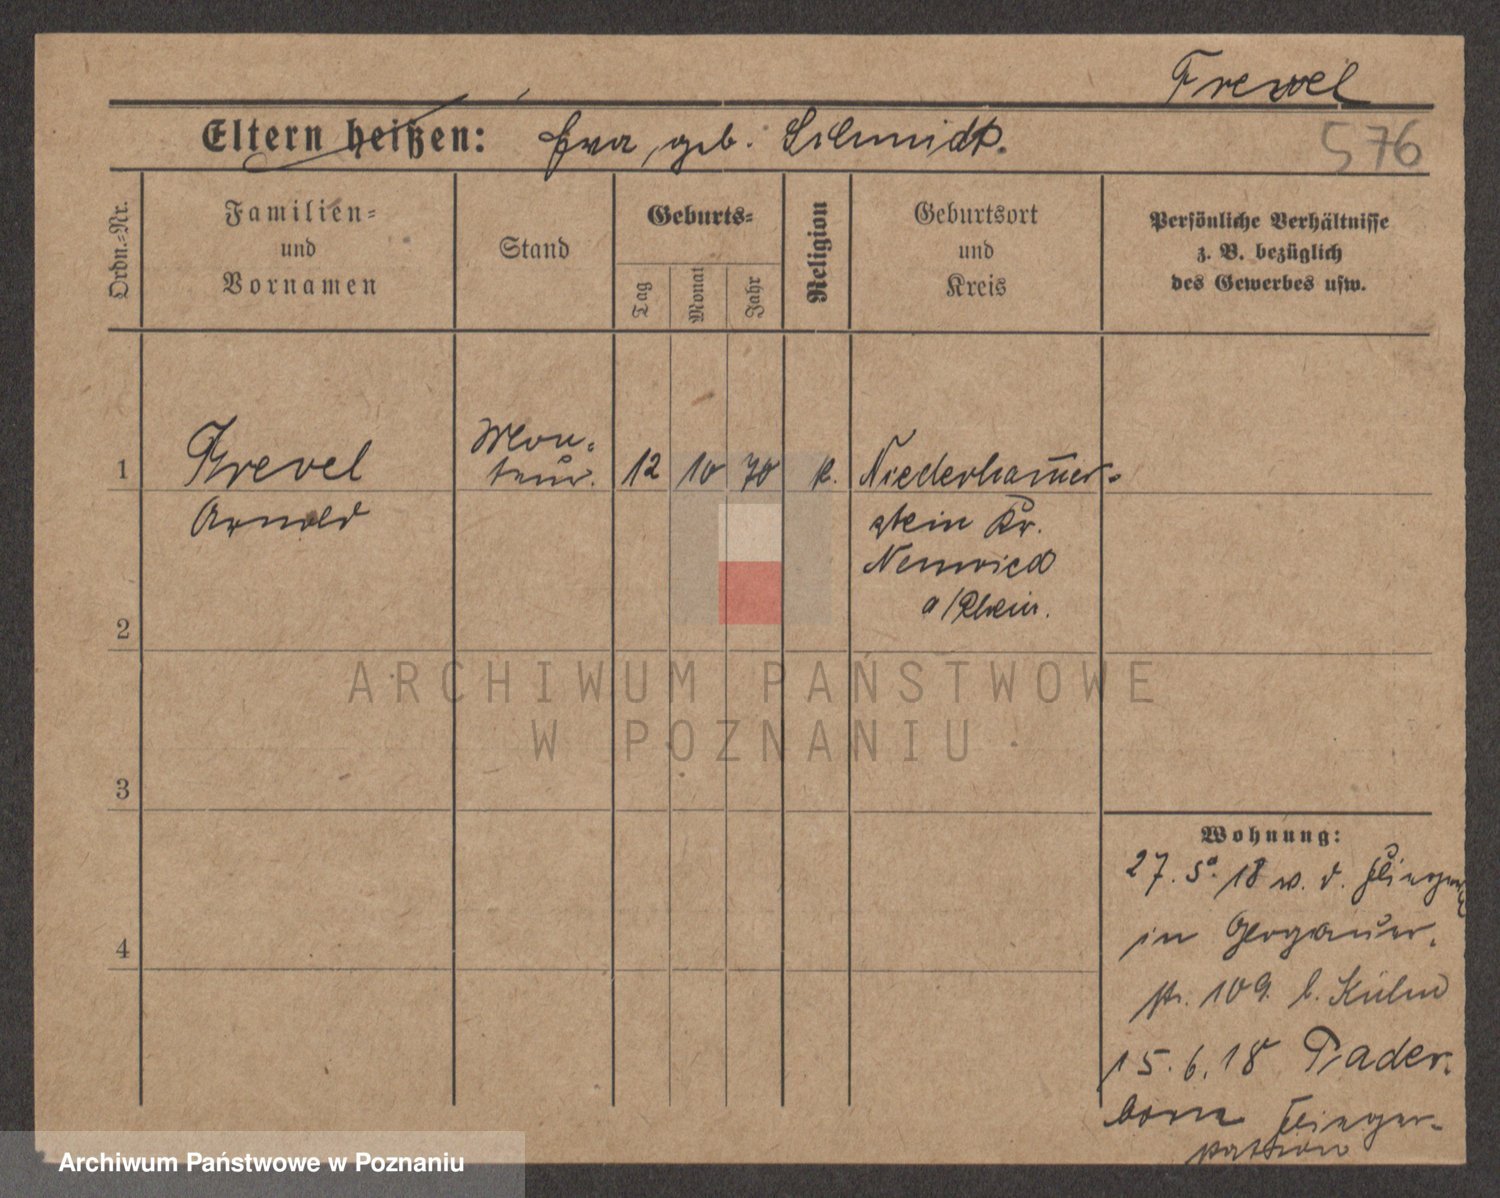 Frevel
Eltern heißen: Eva, geb. Schmidt.
576
Ordn.=Nr.
Familien=
und
Vornamen
Stand
Geburts=
Tag
Monat
Jahr
Religion
Geburtsort
und
Kreis
Persönliche Verhältnisse
z. B. bezüglich
des Gewerbes usw.
1
Frevel
Arnold
Mon-
teur.
12 10 70 k.
Niederham̅er-
stein Kr.
Neuwied
a/Rhein.
2
3
4
Wohnung:
27. 5. 18 v. d.
in Glogauer-
str. 109. b. Kühn
15. 6. 18 Pader-
born Flieger-
station
ARCHIWUM PAŃSTWOWE
W POZNANIU
Archiwum Państwowe w Poznaniu